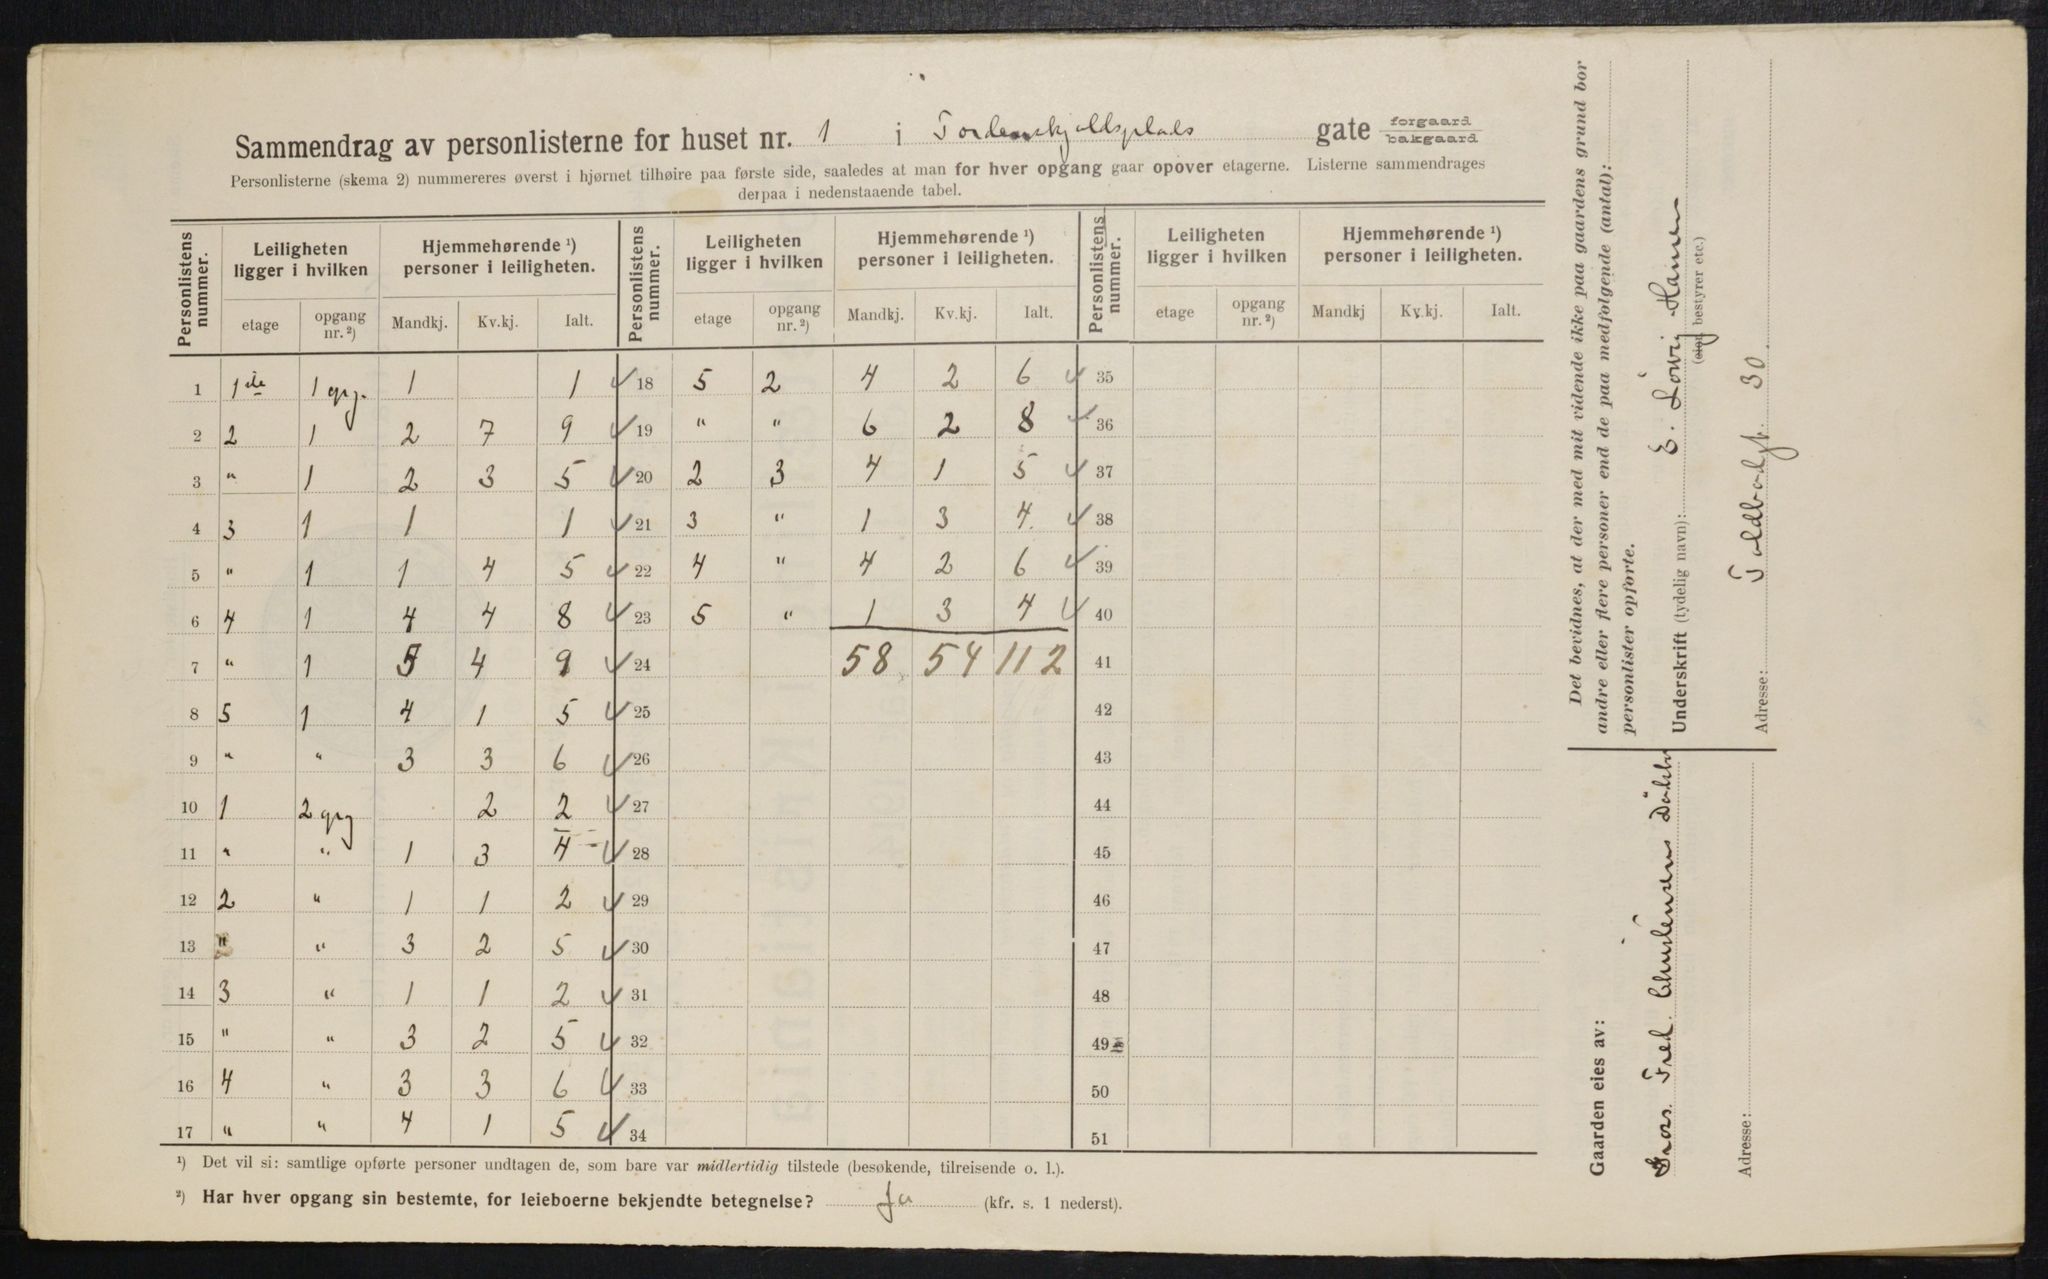 Sammendrag av personlisterne for huset nr. 1 i Tordenskjoldsplads gate forgaard bakgaard
Personlisterne (skema 2) nummereres øverst i hjørnet tilhøire paa første side, saaledes at man for hver opgang gaar opover etagerne. Listerne sammendrages
derpaa i nedenstaaende tabel.
Personlistens nummer. Leiligheten ligger i hvilken Hjemmehørende ¹) personer i leiligheten. Personlistens nummer. Leiligheten ligger i hvilken Hjemmehørende ¹) personer i leiligheten. Personlistens nummer. Leiligheten ligger i hvilken Hjemmehørende ¹) personer i leiligheten.
etage opgang nr. ²) Mandkj. Kv.kj. Ialt. etage opgang nr. ²) Mandkj. Kv.kj. Ialt. etage opgang nr. ²) Mandkj Kv.kj. Ialt.
1 1ste 1 opg. 1 1 18 5 2 4 2 6 35
2 2 1 2 7 9 19 " " 6 2 8 36
3 " 1 2 3 5 20 2 3 4 1 5 37
4 3 1 1 1 21 3 " 1 3 4. 38
5 " 1 1 4 5 22 4 " 4 2 6 39
6 4 1 4 4 8 23 5 " 1 3 4 40
7 " 1 5 4 9 24 58 54 112 41
8 5 1 4 1 5 25 42
9 " " 3 3 6 26 43
10 1 2 opg 2 2 27 44
11 " " 1 3 4 28 45
12 2 " 1 1 2 29 46
13 " " 3 2 5 30 47
14 3 " 1 1 2 31 48
15 " " 3 2 5 32 49
16 4 " 3 3 6 33 50
17 " " 4 1 5 34 51
¹) Det vil si: samtlige opførte personer undtagen de, som bare var midlertidig tilstede (besøkende, tilreisende o. l.).
²) Har hver opgang sin bestemte, for leieboerne bekjendte betegnelse? Ja (kfr. s. 1 nederst).
Det bevidnes, at der med mit vidende ikke paa gaardens grund bor
andre eller flere personer end de paa medfølgende (antal):
personlister opførte.
Underskrift (tydelig navn): E. Lovig Hansen
(eier, bestyrer etc.)
Adresse: Toldbodgt. 30.
Gaarden eies av:
Gros. Fred. Clausens
Adresse: